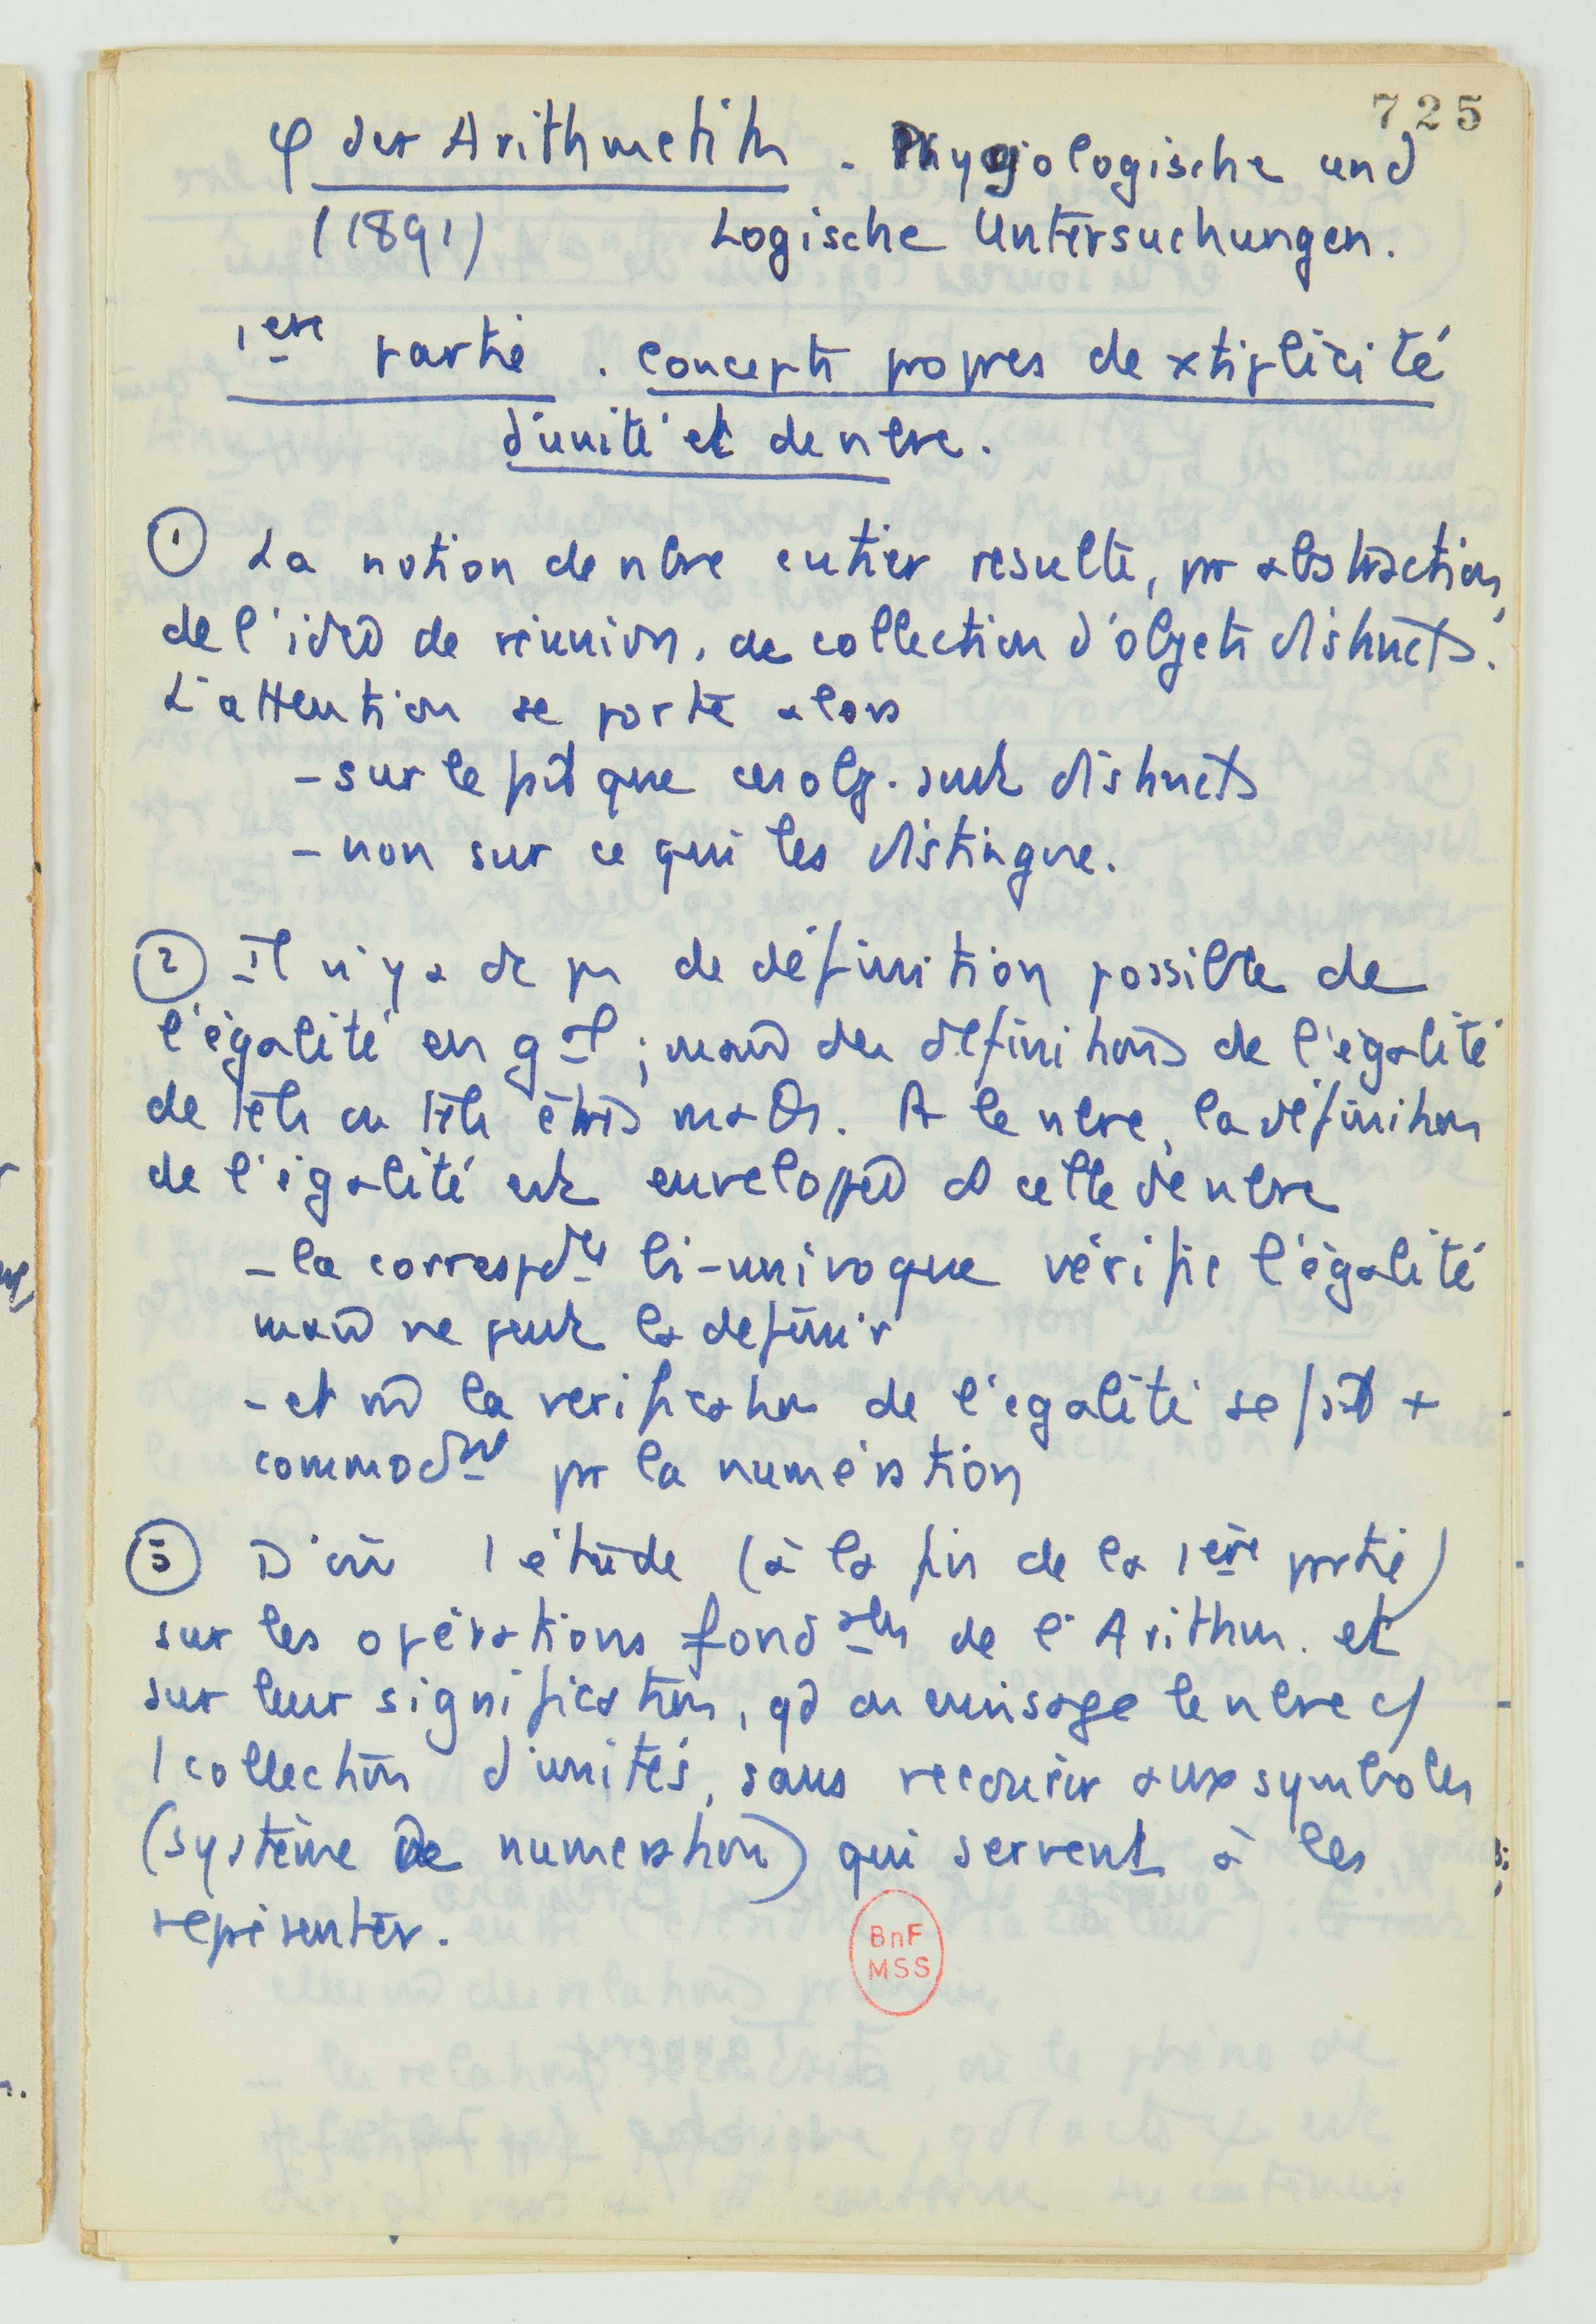 725
φ der Arithmetik - Physologische und
(1891) Logische Untersuchungen.
1ère partie . concepts propres de xtiplicité
d'unité et de nbre.
① La notion de nbre entier resulte, pr abstraction,
de l'idée de réunion, de collection d'objets distincts.
L'attention se porte alors
- sur le fait que ces obj. sont distincts
- non sur ce qui les distingue.
② Il n'y a dc pas de définition possible de
l'égalité en gal ; mais des définitions de l'égalité
de tels ou tels êtres math. A le nbre, la définition
de l'égalité est enveloppée ds celle de nbre
- la correspdce bi-univoque vérifie l'égalité
mais ne peut la définir
- et la verification de l'égalité se fait +
commodmt pr la numération
③ D'où 1 étude (à la fin de la 1ère partie)
sur les opérations fondales de l'Arithm. et
sur leur signification, qd on envisage le nbre c/
1 collection d'unités, sans recourir aux symboles
(système de numération) qui servent à les
représenter.
BnF
MSS